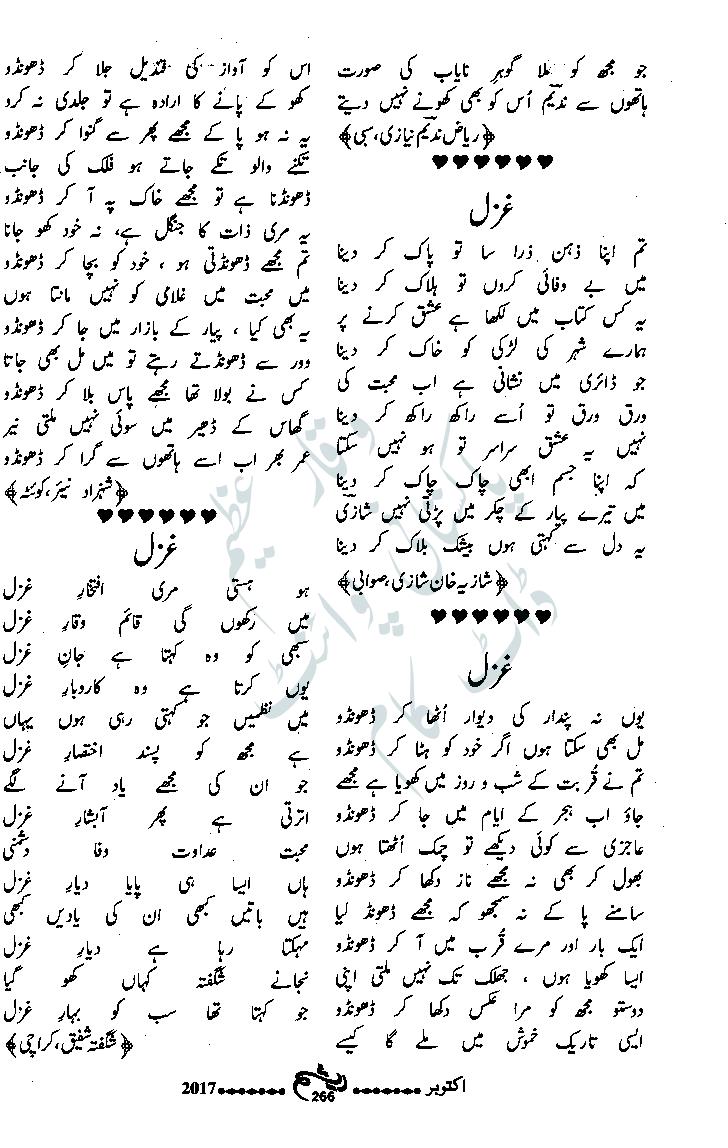 جو مجھ کو ملا گوہرِ نایاب کی صورت
ہاتھوں سے ندیمؔ اُس کو بھی کھونے نہیں دیتے
﴿ریاض ندیم نیازی، سبی﴾
♥♥♥♥♥♥
غزل
تم اپنا ذہن ذرا سا تو پاک کر دینا
میں بے وفائی کروں تو ہلاک کر دینا
یہ کس کتاب میں لکھا ہے عشق کرنے پر
ہمارے شہر کی لڑکی کو خاک کر دینا
جو ڈائری میں نشانی ہے اب محبت کی
ورق ورق تو اُسے راکھ راکھ کر دینا
نہیں یہ عشق سراسر تو ہو نہیں سکتا
کہ اپنا جسم ابھی چاک چاک کر دینا
میں تیرے پیار کے چکر میں پڑتی نہیں شازیؔ
یہ دل سے کہتی ہوں بیشک بلاک کر دینا
﴿شازیہ خان شازی، صوابی﴾
♥♥♥♥♥♥
غزل
یوں نہ پندار کی دیوار اُٹھا کر ڈھونڈو
مل بھی سکتا ہوں اگر خود کو ہٹا کر ڈھونڈو
تم نے قُربت کے شب و روز میں کھویا ہے مجھے
جاؤ اب ہجر کے ایام میں جا کر ڈھونڈو
عاجزی سے کوئی دیکھے تو چمک اُٹھتا ہوں
بھول کر بھی نہ مجھے ناز دکھا کر ڈھونڈو
سامنے پا کے نہ سمجھو کہ مجھے ڈھونڈ لیا
ایک بار اور مرے قُرب میں آ کر ڈھونڈو
ایسا کھویا ہوں ، جھلک تک نہیں ملتی اپنی
دوستو مجھ کو مرا عکس دکھا کر ڈھونڈو
ایسی تاریک خموشی میں ملے گا کیسے
اس کو آواز کی قندیل جلا کر ڈھونڈو
کھو کے پانے کا ارادہ ہے تو جلدی نہ کرو
یہ نہ ہو پا کے مجھے پھر سے گنوا کر ڈھونڈو
تکنے والو تکے جاتے ہو فلک کی جانب
ڈھونڈنا ہے تو مجھے خاک پہ آ کر ڈھونڈو
یہ مری ذات کا جنگل ہے، نہ خود کھو جانا
تم مجھے ڈھونڈتی ہو ، خود کو بچا کر ڈھونڈو
میں محبت میں غلامی کو نہیں مانتا ہوں
یہ بھی کیا ، پیار کے بازار میں جا کر ڈھونڈو
دور سے ڈھونڈتے رہتے تو میں مل بھی جاتا
کس نے بولا تھا مجھے پاس بلا کر ڈھونڈو
گھاس کے ڈھیر میں سوئی نہیں ملتی نیر
عمر بھر اب اسے ہاتھوں سے گرا کر ڈھونڈو
﴿شہزاد نیرؔ، کوئٹہ﴾
♥♥♥♥♥♥
غزل
ہو ہستی مری افتخارِ غزل
میں رکھوں گی قائم وقارِ غزل
سبھی کو وہ کہتا ہے جانِ غزل
یوں کرتا ہے وہ کاروبارِ غزل
میں نظمیں جو کہتی رہی ہوں یہاں
ہے مجھ کو پسند اختصارِ غزل
جو ان کی مجھے یاد آنے لگے
اترتی ہے پھر آبشارِ غزل
محبت عداوت وفا دشمنی
ہاں ایسا ہی پایا دیارِ غزل
ہیں باتیں کبھی ان کی یادیں کبھی
مہکتا رہا ہے دیارِ غزل
نجانے شگفتہ کہاں کھو گیا
جو کہتا تھا سب کو بہارِ غزل
﴿شگفتہ شفیق، کراچی﴾
اکتوبر 266 2017
وقار عظیم
پاکستانی پوائنٹ
ڈاٹ کام